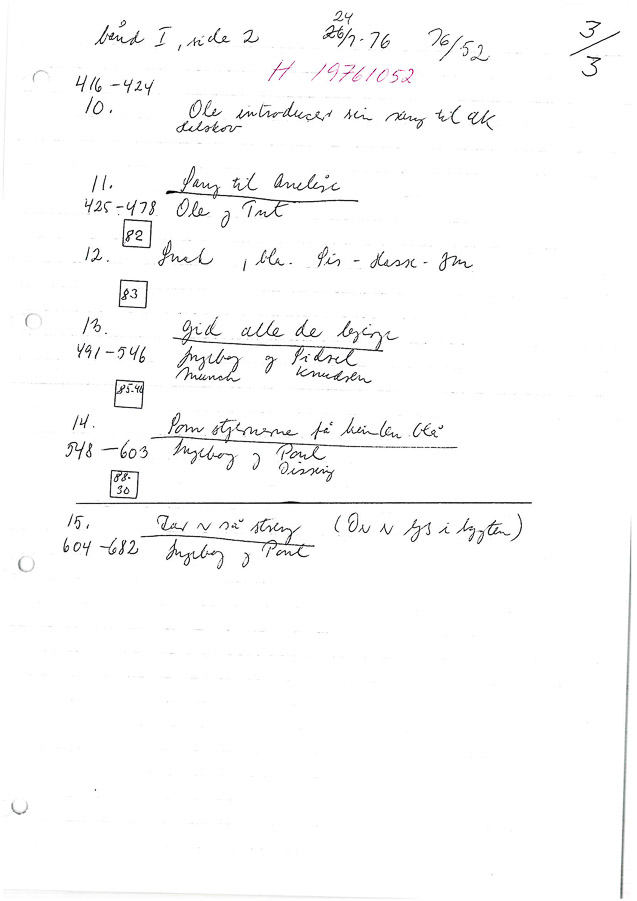 bånd I, side 2 24 26/7-76 76/52 3/3
H 19761052
416-424
10. Ole introducer sin sang til
425-478 Ole og Tut
11. Sang til Anelise
82
12. Snak, bla.
83
13. gid alle de bjerge
491-546 Ingeborg og Sidsel
Munch Knudsen
85-40
14. Som stjernerne på himlen blå
548-603 Ingeborg og Poul
Dissing
88-30
15. så streng (i lygten)
604-682 Ingeborg og Poul